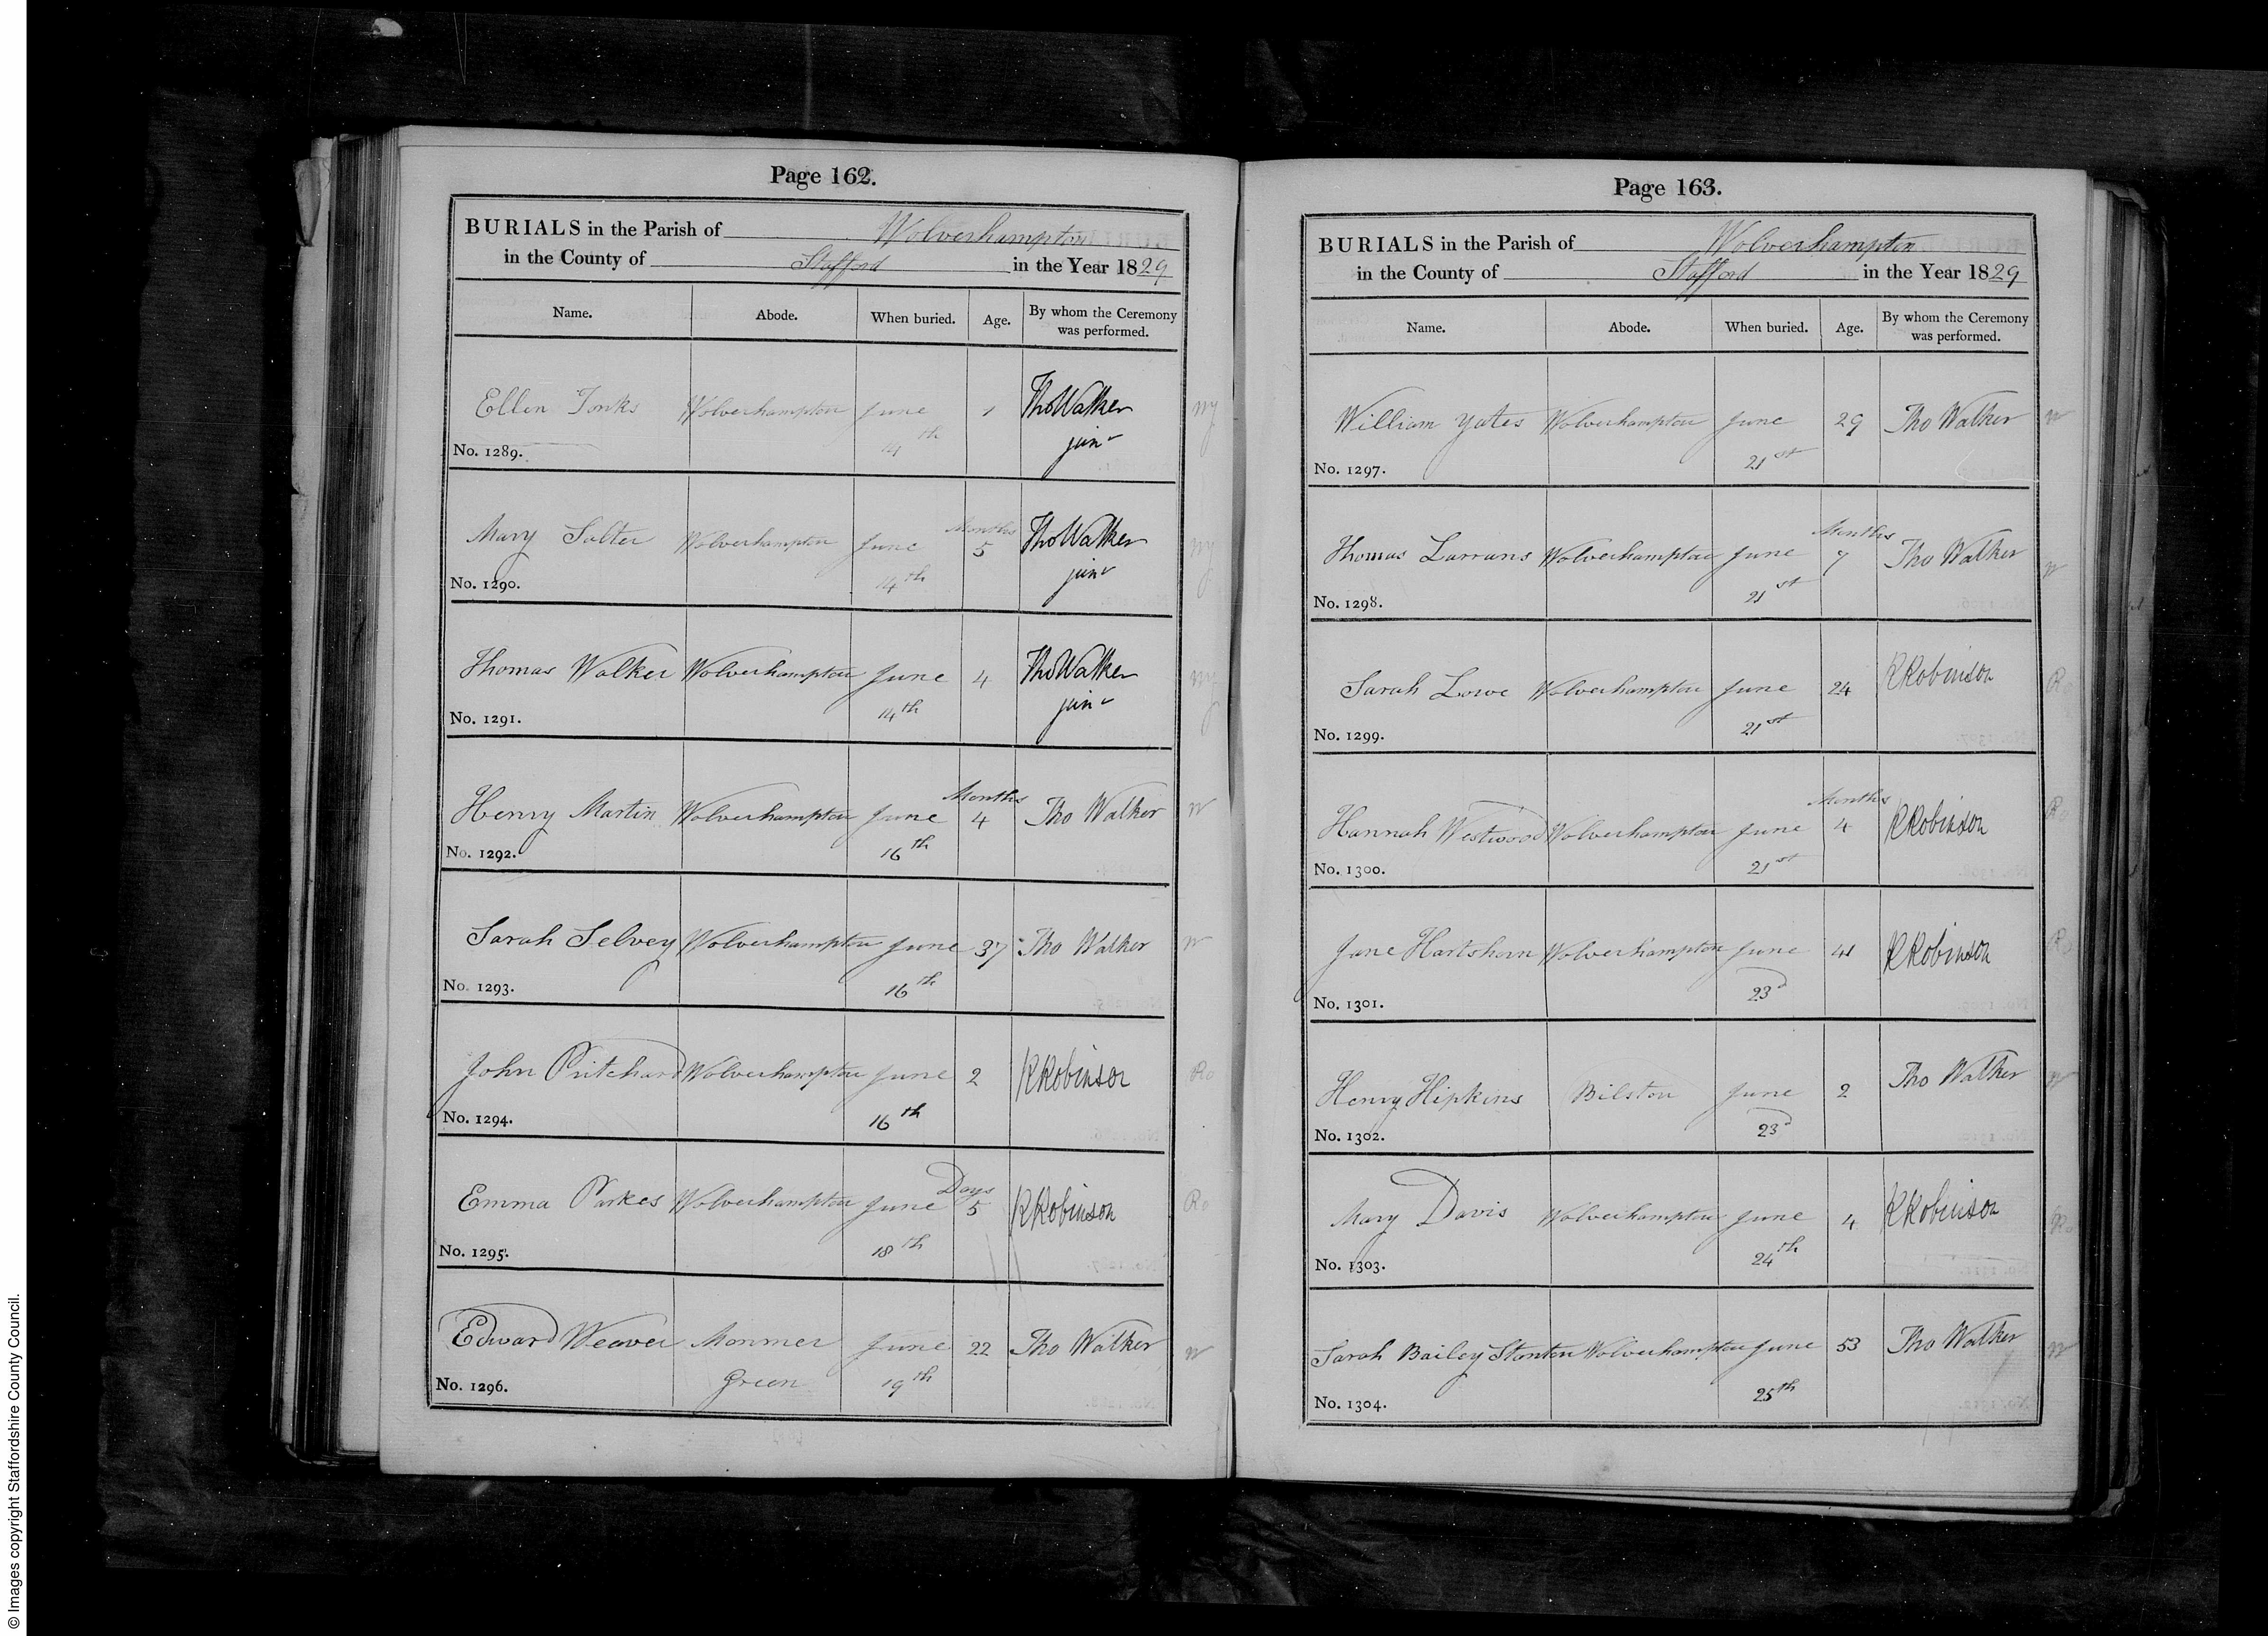 Page 162.
BURIALS in the Parish of Wolverhampton
in the County of Stafford in the Year 1829
Name. Abode. When buried. Age. By whom the Ceremony was performed.
Ellen Tonks Wolverhampton June 1 Tho Walker
14th junr
No. 1289.
Months
Mary Salter Wolverhampton June 5 Tho Walker
14th junr
No. 1290.
Thomas Walker Wolverhampton June 4 Tho Walker
14th junr
No. 1291.
Months
Henry Martin Wolverhampton June 4 Tho Walker
No. 1292. 16th
Sarah Selvey Wolverhampton June 37 Tho Walker
No. 1293. 16th
John Pritchard Wolverhampton June 2 R Robinson
No. 1294. 16th
Days
Emma Parkes Wolverhampton June 5 R Robinson
No. 1295. 18th
Edward Weaver Monmer June 22 Tho Walker
No. 1296. Green 19th
Page 163.
BURIALS in the Parish of Wolverhampton
in the County of Stafford in the Year 1829
Name. Abode. When buried. Age. By whom the Ceremony was performed.
William Yates Wolverhampton June 29 Tho Walker
No. 1297. 21st
Months
Thomas Larrans Wolverhampton June 7 Tho Walker
No. 1298. 21st
Sarah Lowe Wolverhampton June 24 R Robinson
No. 1299. 21st
Months
Hannah Westwood Wolverhampton June 4 R Robinson
No. 1300. 21st
Jane Hartshorn Wolverhampton June 41 R Robinson
No. 1301. 23d
Henry Hipkins Bilston June 2 Tho Walker
No. 1302. 23d
Mary Davis Wolverhampton June 4 R Robinson
No. 1303. 24th
Sarah Bailey Stanton Wolverhampton June 53 Tho Walker
No. 1304. 25th
© Images copyright Staffordshire County Council.